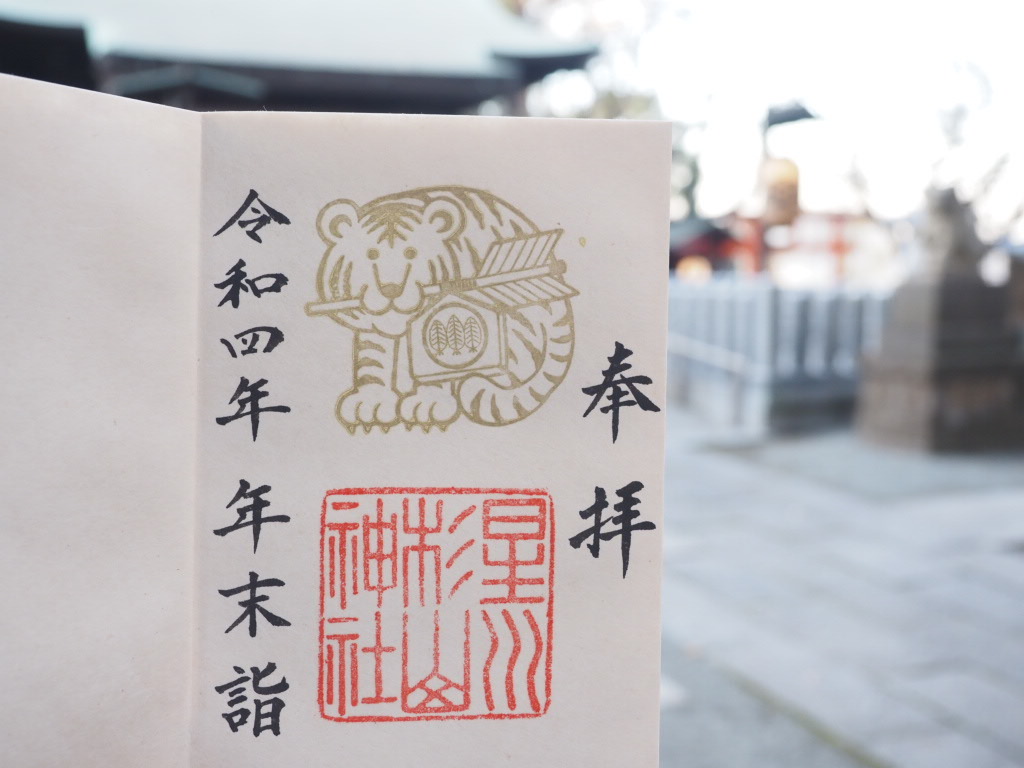 奉拝
星川杉山神社
令和四年 年末詣